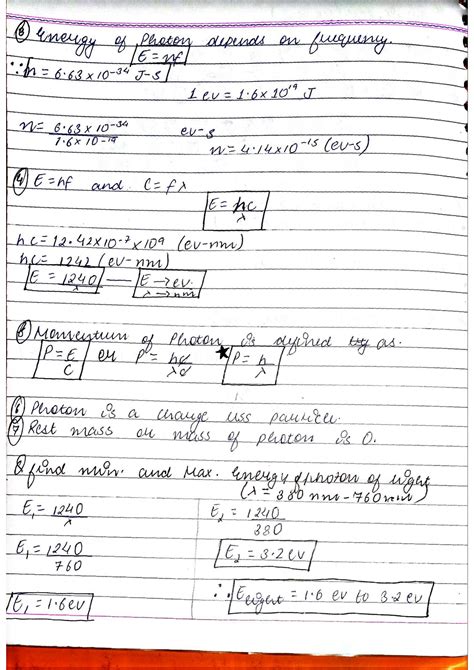 ③ Energy of Photon depends on frequency.
E = hf
∵ h = 6.63 x 10⁻³⁴ J-S
1 ev = 1.6 x 10¹⁹ J
h = 6.63 x 10⁻³⁴ / 1.6 x 10⁻¹⁹ ev-s
h = 4.14 x 10⁻¹⁵ (ev-s)
④ E = hf and C = fλ
E = hc / λ
hc = 12.42 x 10⁻⁷ x 10⁹ (ev-nm)
hc = 1242 (ev-nm)
E = 1240 / λ — E → ev. λ → nm
⑤ Momentum of Photon is defined as.
P = E / C or P = hc / λc ★ P = h / λ
⑥ Photon is a charge less particle.
⑦ Rest mass or mass of photon is 0.
Q find min. and Max. Energy of photon of light
(λ = 380 nm - 760 nm)
E₁ = 1240 / λ
E₂ = 1240 / 380
E₁ = 1240 / 760
E₂ = 3.2 ev
E₁ = 1.6 ev
∴ E light = 1.6 ev to 3.2 ev